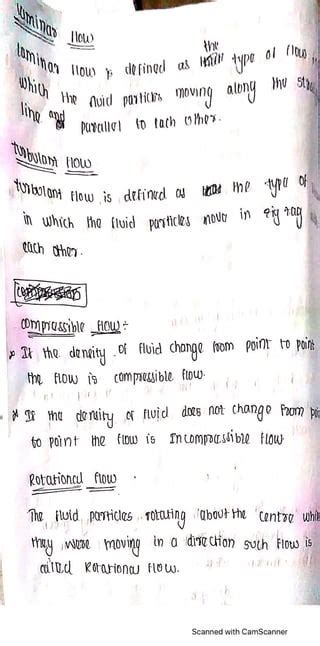 Laminar flow
Laminar flow is defined as the type of flow
which the fluid particles moving along the
line and parallel to each other.
turbulant flow
turbulant flow is defined as the type of
in which the fluid particles move in zig zag
each other.
compressible flow:-
If the density of fluid change from point to point
the flow is compressible flow.
If the density of fluid does not change from
to point the flow is Incompressible flow
Rotational flow
The fluid particles rotating about the centre
they were moving in a direction such flow is
called Rotational flow.
Scanned with CamScanner